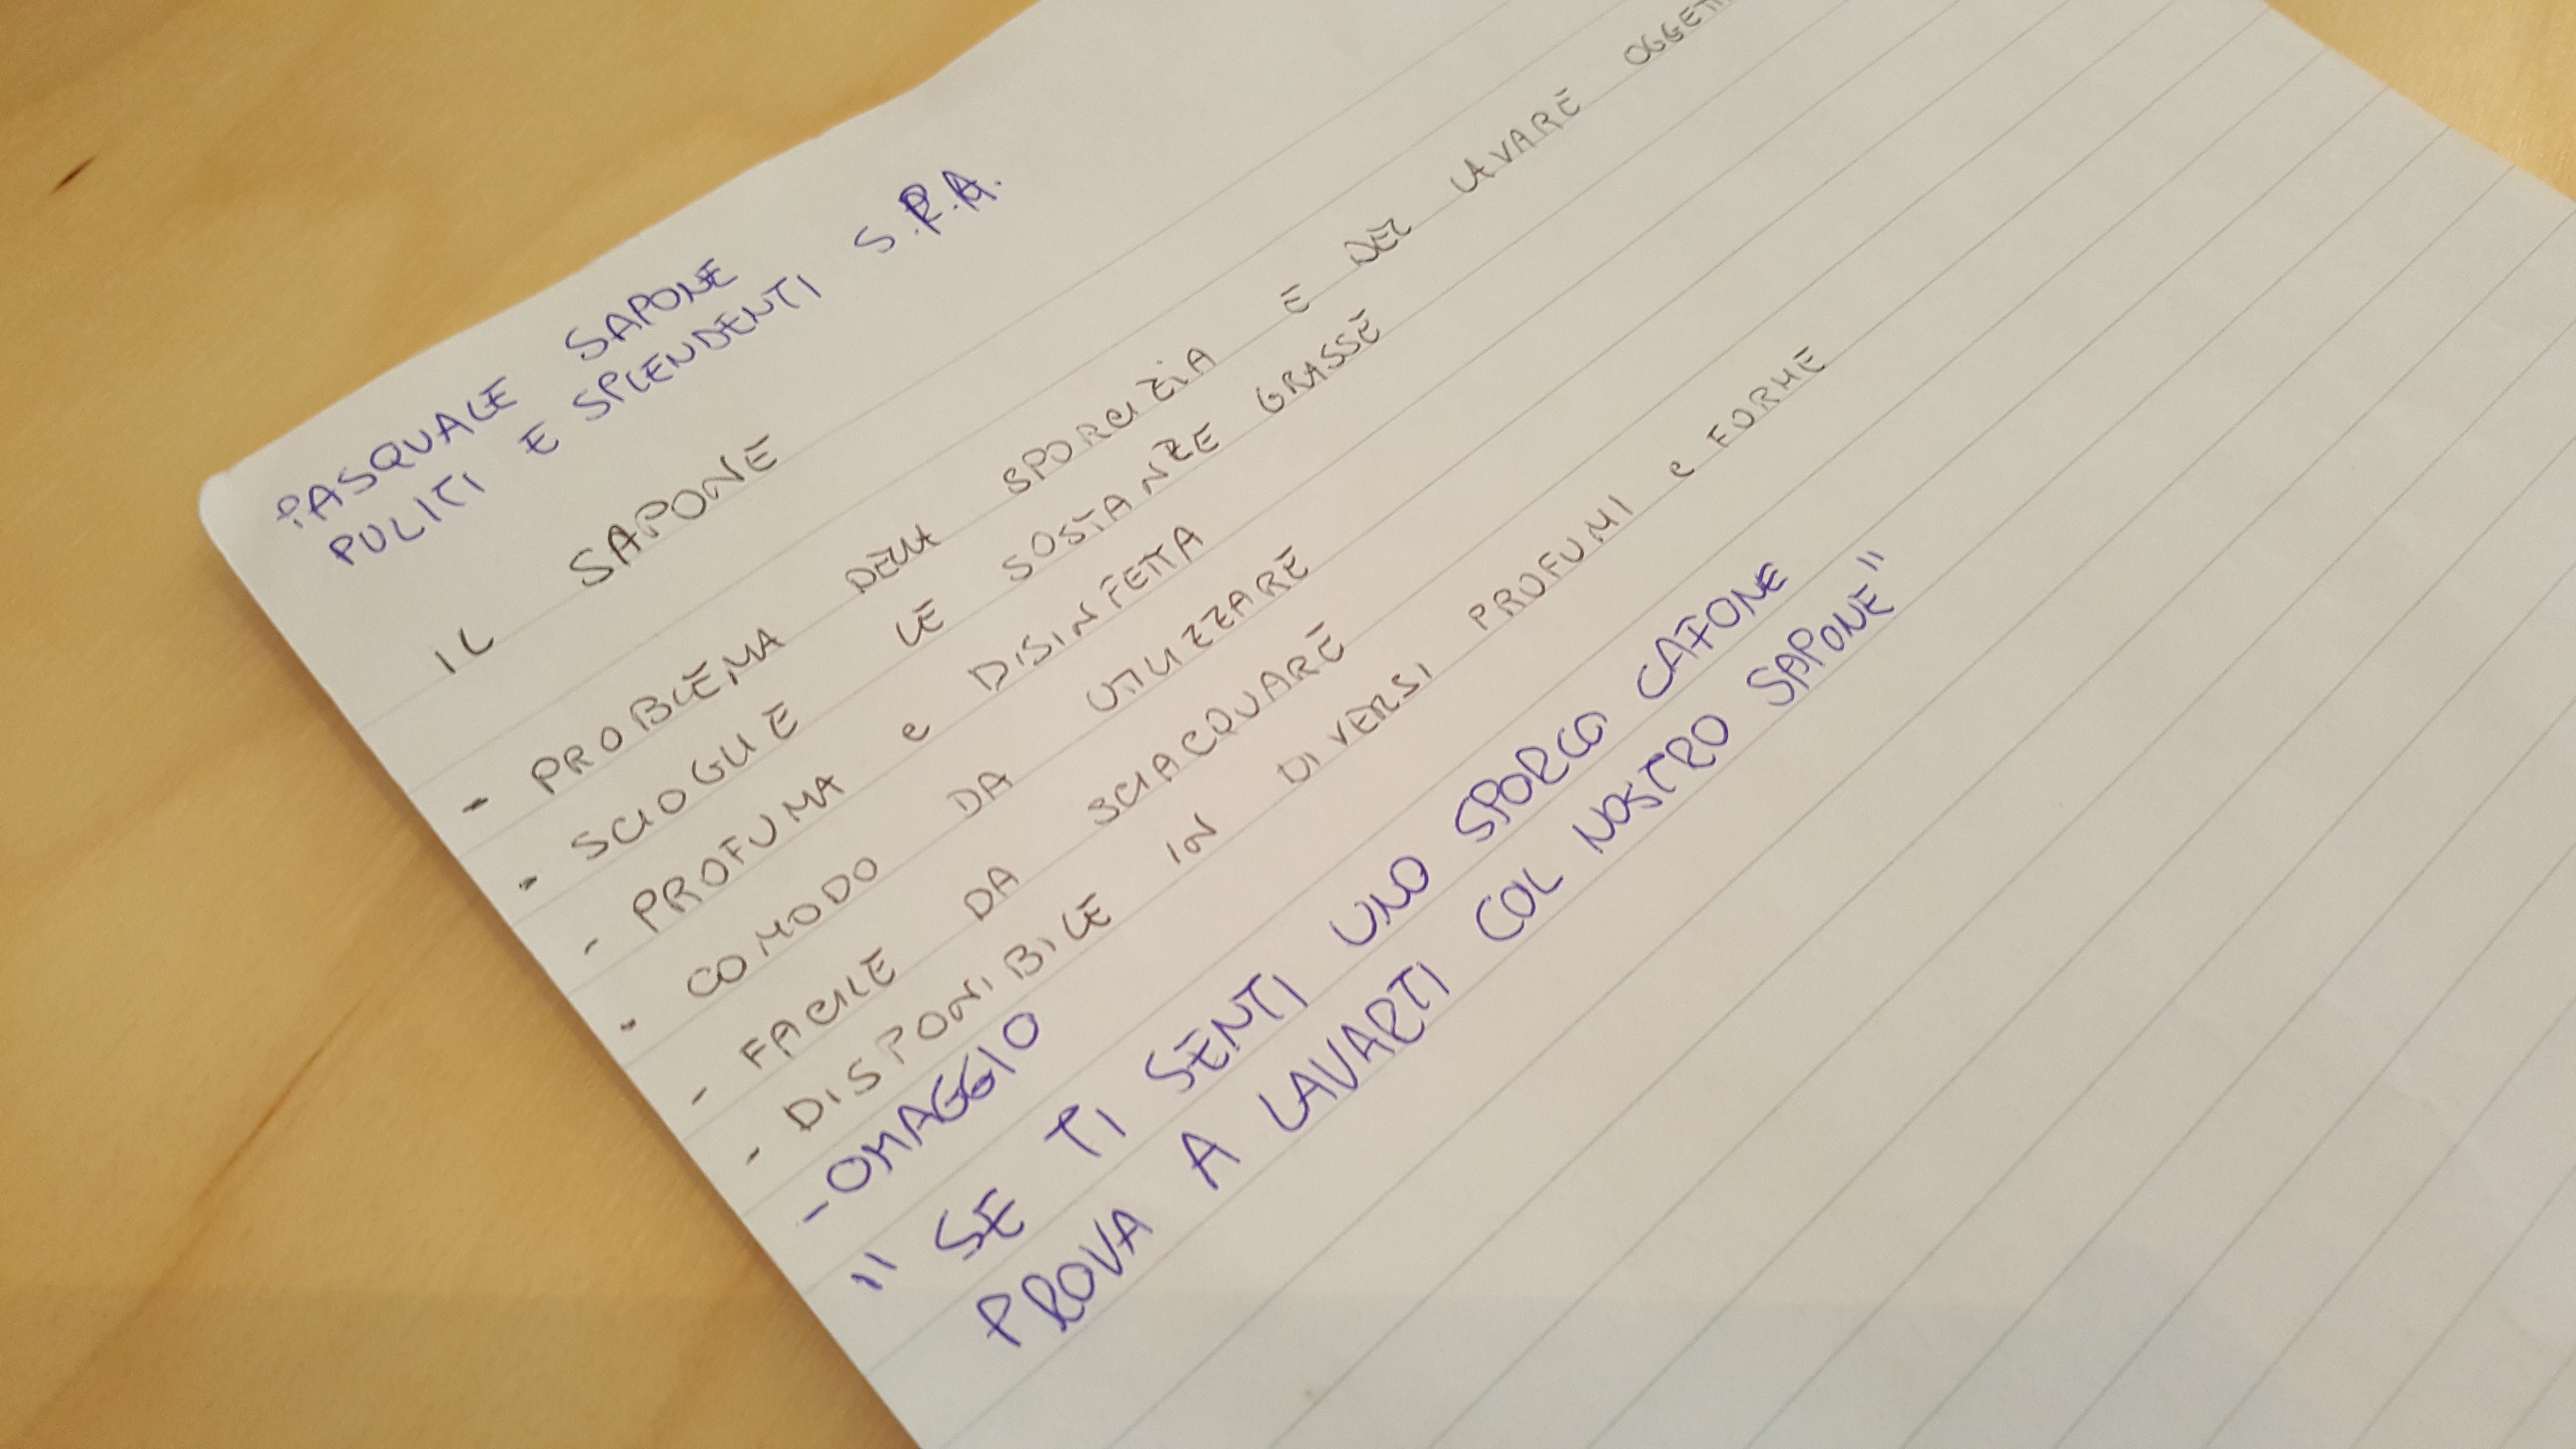 PASQUALE SAPONE S.P.A.
PULITI E SPLENDENTI
IL SAPONE
- PROBLEMA DELLA SPORCIZIA E DEL LAVARE
- SCIOGLIE LE SOSTANZE GRASSE
- PROFUMA e DISINFETTA
- COMODO DA UTILIZZARE
- FACILE DA SCIACQUARE
- DISPONIBILE IN DIVERSI PROFUMI e FORME
- OMAGGIO
"SE TI SENTI UNO SPORCO CAFONE
PROVA A LAVARTI COL NOSTRO SAPONE"